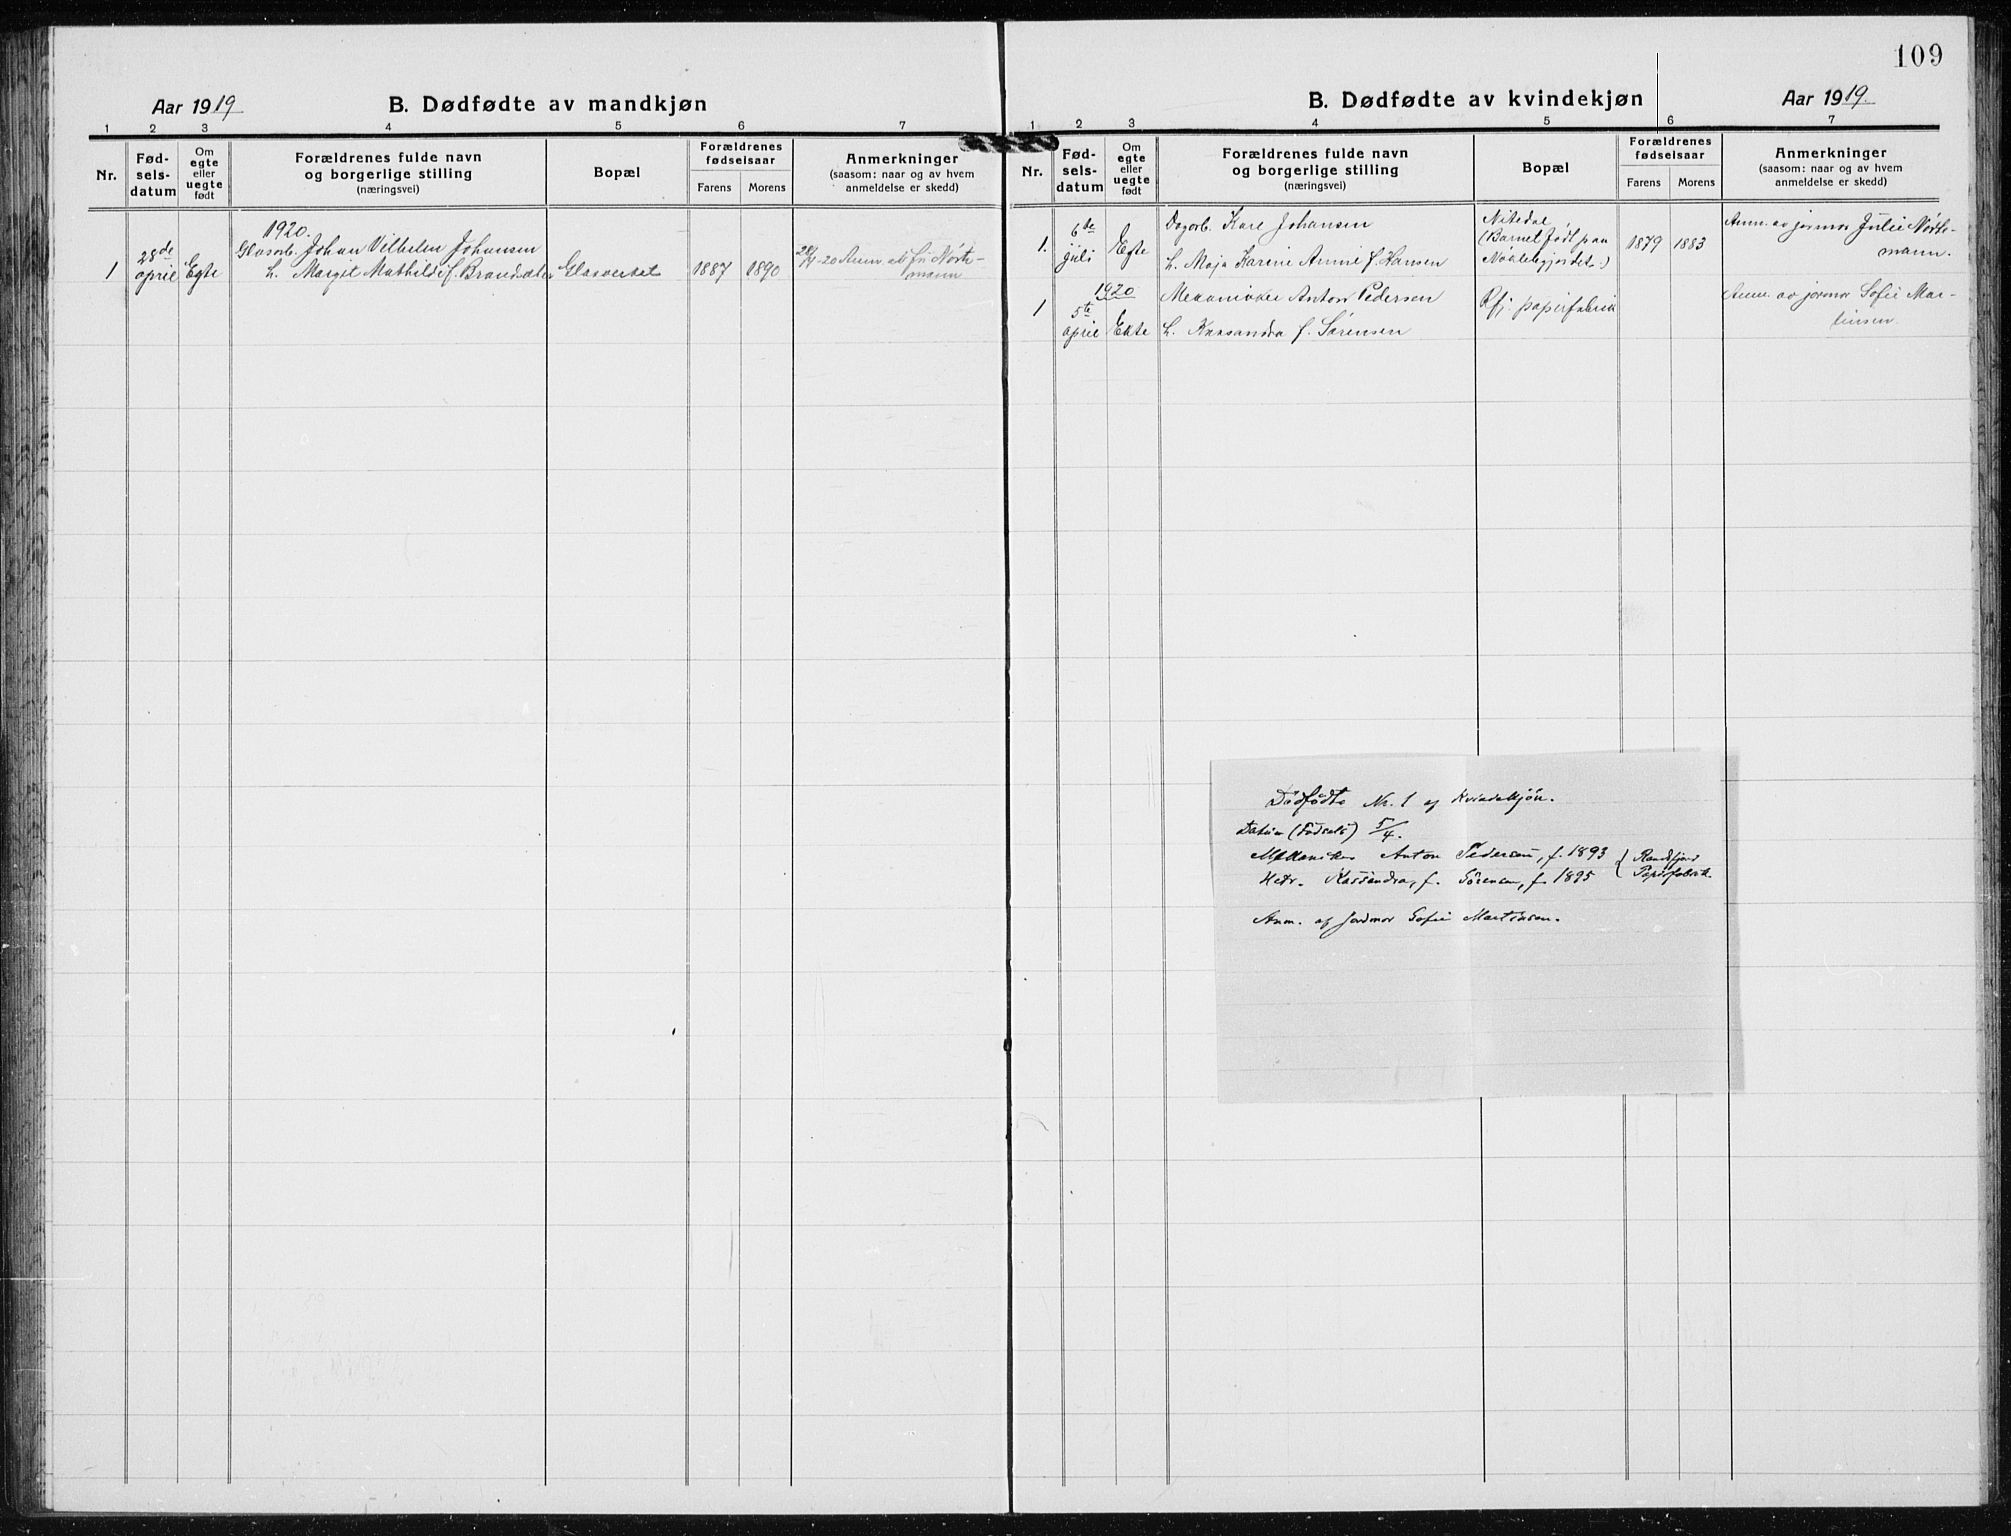 109
Aar 1919
B. Dødfødte av mandkjøn
1 2 3 4 5 6 7
Nr.
Fød-
sels-
datum
Om
egte
eller
uegte
født
Forældrenes fulde navn
og borgerlige stilling
(næringsvei)
Bopæl
Forældrenes
fødselsaar
Farens Morens
Anmerkninger
(saasom: naar og av hvem
anmeldelse er skedd)
1920.
28de Glasarb. Johan Vilhelm Johansen
1 april Egte h. Margit Mathilde f. Glasverket 1887 1890 28/4-20 Anm. av fru Nordt-
mann
B. Dødfødte av kvindekjøn
Aar 1919.
1 2 3 4 5 6 7
Nr.
Fød-
sels-
datum
Om
egte
eller
uegte
født
Forældrenes fulde navn
og borgerlige stilling
(næringsvei)
Bopæl
Forældrenes
fødselsaar
Farens Morens
Anmerkninger
(saasom: naar og av hvem
anmeldelse er skedd)
6de Dagarb. Karl Johansen Nitedal Anm. av jormor Julie Nordt-
1. juli Egte (Barnet født paa 1879 1883 mann.
h. Maja Karine Annie f. Hansen
1920 Mekaniker Anton Pedersen
1 5te Rfj. papirfabrik Anm. av jormor Sofie Mar-
april Ekte h. Kassandra f. Sørensen tinsen.
Dødfødte Nr. 1 af Kvindekjön.
Datum (Fødsels) 5/4.
Mekaniker Anton Pedersen, f. 1893 Randsfjord
Hstr. Kassandra, f. Sörensen, f. 1895 Papirfabrik.
Anm. af Jordmor Sofie Martinsen.